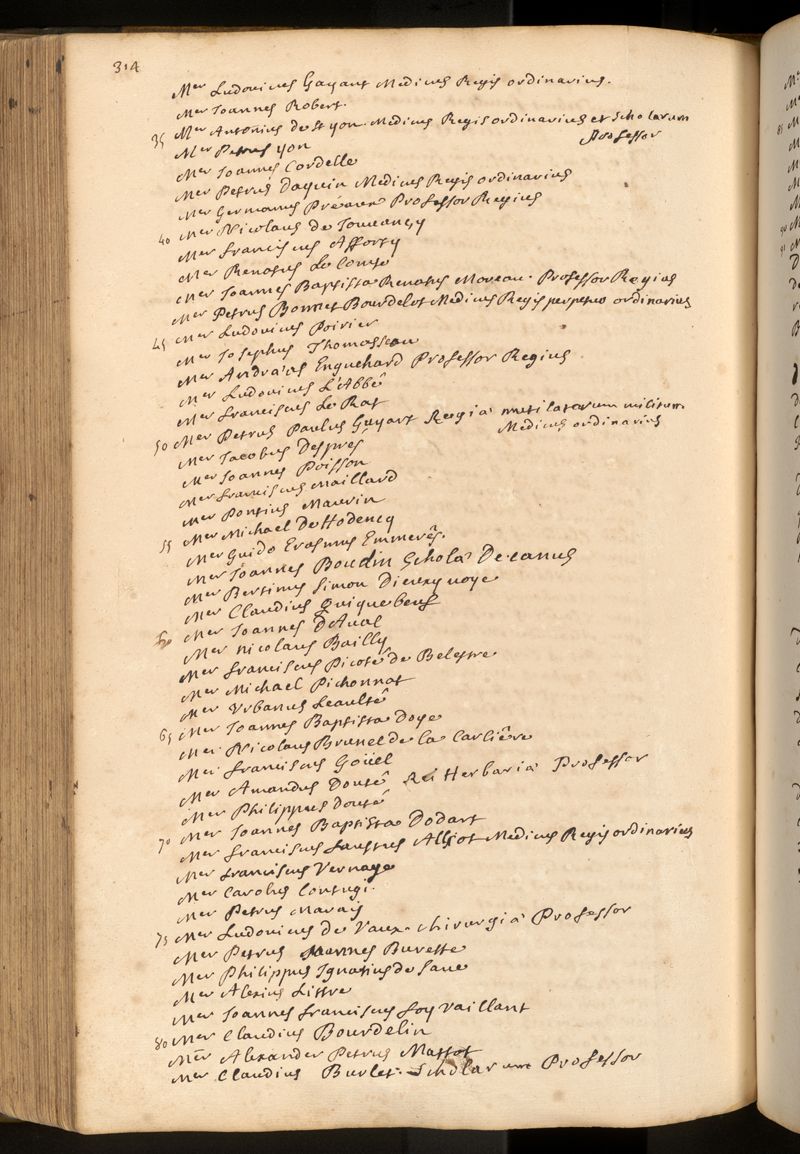 314
Mer Ludovicus Gayant Medicus Regis ordinarius.
Mer Joannes Robert.
35 Mer Antonius de St yon. Medicus Regis ordinarius et scholarum
Professor
Mer Petrus yon
Mer Joannes Cordelle
Mer Petrus Daquin Medicus Regis ordinarius
Mer Germanus Préaux Professor Regius
40 Mer Nicolaus de
Mer Franciscus Afforty
Mer Renatus Le Comte
Mer Joannes Baptista Renatus Moreau. Professor Regius
Mer Petrus Bonnet Bourdelot Medicus Regis perpetuo ordinarius
45 Mer Ludovicus Poirier
Mer Josephus Thomasseau
Mer Andræas Enguehard Professor Regius
Mer Ludovicus L'Abbé
Mer Franciscus Le Rat
50 Mer Petrus Paulus Guyart Regiæ mutilatorum militum
Medicus ordinarius
Mer Jacobus Desprès
Mer Joannes Poisson
Mer Franciscus Maillard
Mer Pontius Maurin
55 Mer Michael De Hodencq
Mer Guido Erasmus Emmerês.
Mer Joannes Boudin Scholæ Decanus
Mer Bertinus Simon Dieuxyvoye
Mer Claudius Quiquebeuf
60 Mer Joannes D'Aval
Mer Nicolaus Bailly
Mer Franciscus Picoté de Belestre
Mer Michael Pichonnat
Mer Vrbanus Leaulté
65 Mer Joannes Baptista Doye
Mer Nicolaus Brunel de la Carlière
Mer Franciscus Goüel
Mer Amandus Douté Rei Herbariæ Professor
Mer Philippus Douté
70 Mer Joannes Baptista Dodart
Mer Franciscus Faustus Alliot Medicus Regis ordinarius
Mer Franciscus Vernage
Mer Carolus Contugi.
Mer Petrus Marais
75 Mer Ludovicus de Vaux. chirurgiæ Professor
Mer Petrus Joannes Burette
Mer Philippus Ignatius de Sane
Mer Alexius Littre
Mer Joannes Franciscus Foy Vaillant
80 Mer Claudius Bourdelin
Mer Alexander Petrus Mattot
Mer Claudius Burlet. Scholarum Professor